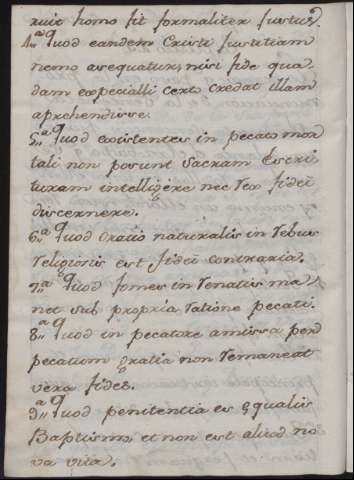 ruit homo fit formaliter Justus.
4.ª Quod eandem Cristi Justitiam
nemo asequatur, nisi fide qua
dam expecialli certo credat illam
aprehendisse.
5.ª Quod existentes in pecato mor
tali non posunt Sacram Escri
turam intelligere nec res fidei
discernere.
6.ª Quod Oratio naturalis in rebus
religiosis est fidei contraria.
7.ª Quod fomes in renatis ma
net sub propria ratione pecati.
8.ª Quod in pecatore amissa per
pecatum gratia non remaneat
vera fides.
9.ª Quod penitentia es equalis
Baptismo, et non est aliud no
va vita.